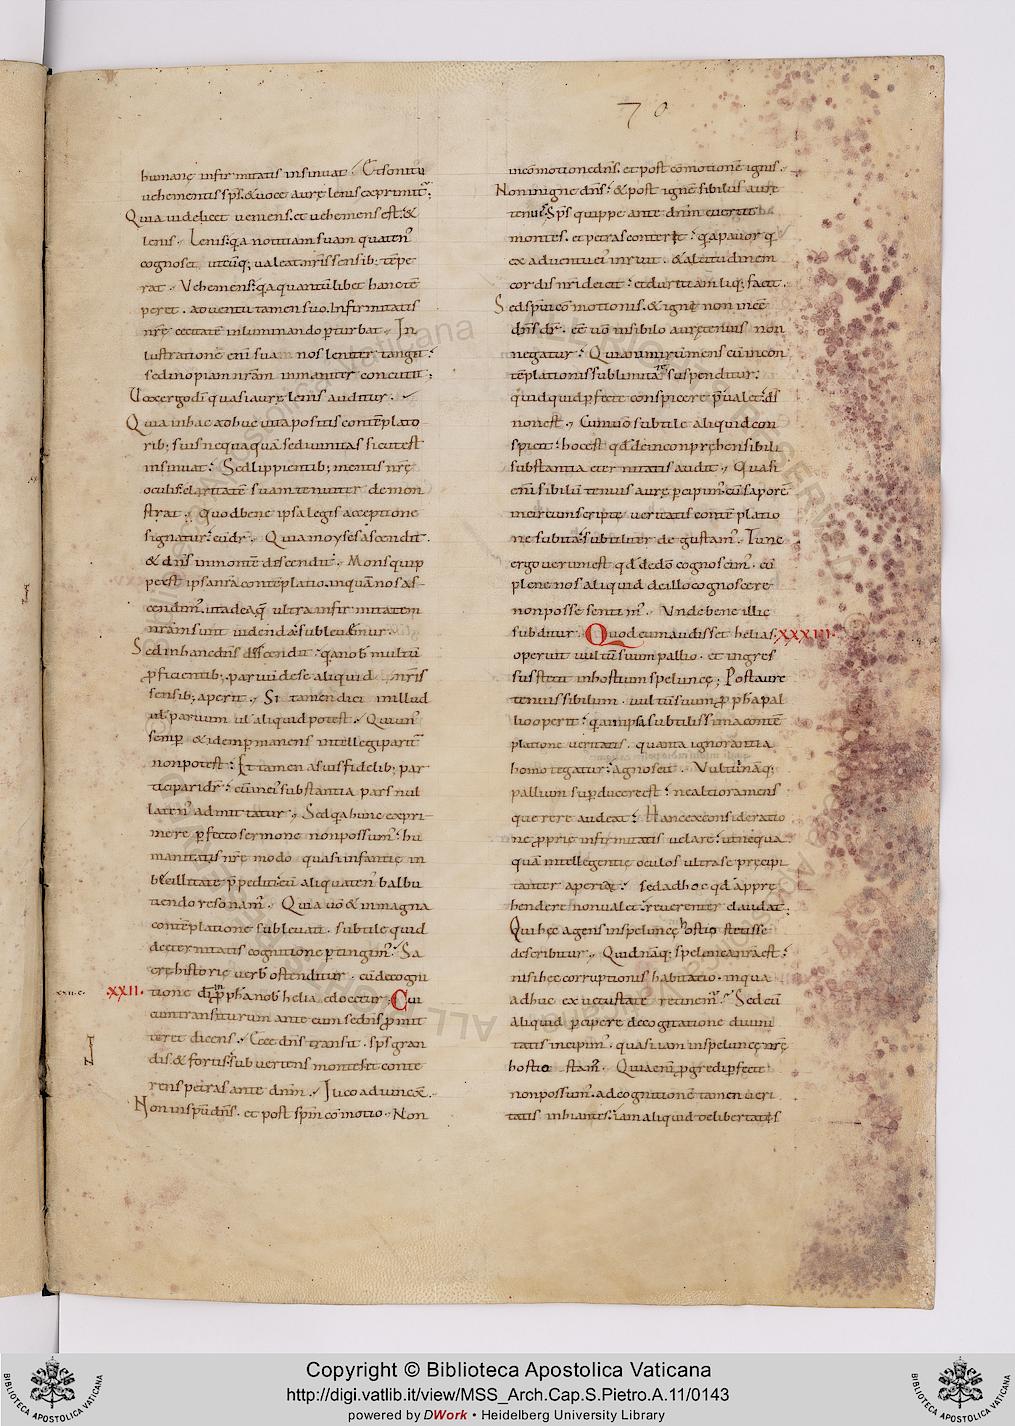 70
humanę infirmitatis insinuat. Et sonitu
uehementis sp̄s. & uoce aurę lenis exprimit̄.
Quia uidelicet ueniens. et uehemens est. &
lenis. Lenis: q̄a notitiam suam quaten᾽
cognosci utcūq; ualeat. nr̄is sensib; tēpe
rat. Vehemens: q̄a quantūlibet hanc tē
peret. aduentu tamen suo. Infirmitatis
nr̄ę cecitatē inluminando p̱turbat. In
lustratione eni suam nos leniter tangit:
sed inopiam nr̄am inmaniter concutit;
Uox ergo dī quasi aurę lenis auditur.
Quia in hac adhuc uita positis contēplato
rib; suis nequaquā se diuinitas sicut est
insinuat: Sed lippientib; mentis nr̄ę
oculis claritatē suam tenuiter demon
strat. Quod bene ipsa legis acceptione
signatur: cū dr̄. Quia moyses ascendit.
& dn̄s in monte descendit. Mons quip
pe est ipsa nr̄a contēplatio. in quā nos as
cendim᾽. ut ad ea q̄ ultra infirmitatem
nr̄am sunt uidenda: subleuemur.
Sed in hanc dn̄s descendit: q̄a nob̄ multū
p̱ficientib; parum de se aliquid nr̄is
sensib; aperit. Si tamen dici in illud
ul̄ paruum ul̄ aliquid potest. Qui un᾽
semp̱ & idem p̱manens intellegi partī
non potest: Et tamen a suis fidelib; par
ticipari dr̄: cū in ei substantia pars nul
laten᾽ admittatur. Sed q̄a hunc expri
mere p̱fecto sermone non possum᾽: hu
manitatis nr̄ę modo quasi infantię in
becillitate p̄pediti: eū aliquaten᾽ balbu
tiendo resonam᾽. Quia uō & in magna
contēplatione subleuati. subtile quid
de eternitatis cognitione p̱tingim᾽: Sa
crę historię uerb̄ ostenditur. cū de cogni
xxii.c. ·XXII· tione dī p̱ pħam nob̄ helia edocetur. Cui
cum transiturum ante eum se dn̄s p̱mit
teret dicens. Ecce dn̄s transit. sp̄s gran
dis. & fortis: subuertens montes. et conte
rens petras ante dn̄m. Ilico adiunxit.
Non in sp̄u dn̄s. et post sp̄m cōmotio. Non
in cōmotione dn̄s. et post cōmotionē ignis.
Non in igne dn̄s: & post ignē sibilus aurę
tenuis. Sp̄s quippe ante dn̄m euertit
montes. et petras conterit: q̄a pauor q̄
ex aduentu ei᾽ inruit. & altitudinem
cordis nr̄i deicit: et duritiam liq; facit.
Sed sp̄ui cōmotionis. & igni non inēē
dn̄s dr̄. ēē uō in sibilo aurę tenuis non
negatur: Quia nimirū mens cū in con
tēplationis sublimitate suspenditur:
quidquid p̱fecte conspicere p̄ualet: dī
non est. Cum uō subtile aliquid con
spicit: hoc est qd̄ de inconprehensibili
substantia eternitatis audit. Quasi
eni sibilū tenuis aurę p̱cipim᾽. cū saporē
incircumscriptę ueritatis contēplatio
ne subita: subtiliter degustam᾽. Tunc
ergo uerum est qd̄ de dō cognoscim᾽. cū
plene nos aliquid de illo cognoscere
non posse sentim᾽. Unde bene illic
subditur. Quod cum audisset helias. ·XXXIII·
operuit uultū suum pallio. et ingres
sus stetit in hostium spelunce; Post aurę
tenuis sibilum. uultū suum p̱pħa pal
lio operit: q̄a in ipsa subtilissima contē
platione ueritatis. quanta ignorantia
homo tegatur: agnoscit. Vultui nāq;
pallium sup̱ducere est: ne altiora mens
querere audeat: Hanc ex consideratio
ne p̱prię infirmitatis uelare: ut nequa
quā intellegentię oculos ultra se pręcipi
tanter aperiat: sed ad hoc qd̄ appre
hendere non ualet: reuerenter claudat.
Qui hęc agens in speluncę hostio stetisse
describitur. Quid nāq; spelunca nr̄a est:
nisi hęc corruptionis habitatio. in qua
adhuc ex uetustate retinem᾽: Sed cū
aliquid p̱cipere de cognitione diuini
tatis incipim᾽. quasi iam in speluncę nr̄ę
hostio stam᾽. Quia eni p̱gredi p̱fecte
non possum᾽. ad cognitionē tamen ueri
tatis inhiantes: iam aliquid de libertatis
Copyright © Biblioteca Apostolica Vaticana
http://digi.vatlib.it/view/MSS_Arch.Cap.S.Pietro.A.11/0143
powered by DWork • Heidelberg University Library